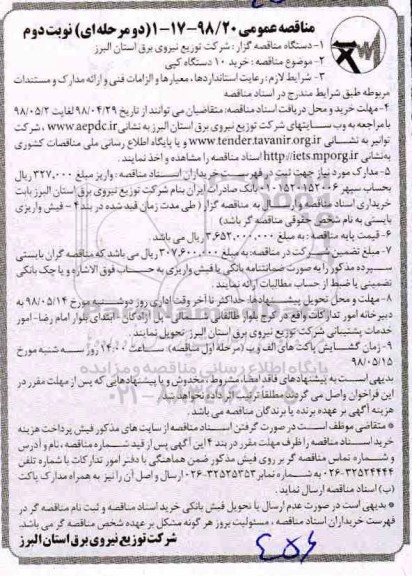 مناقصه عمومی ۹۸/۲۰-۱۷-۱(دو مرحله‌ای) نوبت دوم
۱- دستگاه مناقصه گزار: شرکت توزیع نیروی برق استان البرز
۲- موضوع مناقصه: خرید ۱۰ دستگاه کپی
۳- شرایط لازم: رعایت استانداردها، معیارها و الزامات فنی و ارائه مدارک و مستندات
مربوطه طبق شرایط مندرج در اسناد مناقصه
۴- مهلت خرید و محل دریافت اسناد مناقصه: متقاضیان می توانند از تاریخ ۹۸/۰۴/۲۹ لغایت ۹۸/۰۵/۲
با مراجعه به وب سایتهای شرکت توزیع نیروی برق استان البرز به نشانی www.aepdc.ir ، شرکت
توانیر به نشانی www.tender.tavanir.org.ir و یا پایگاه اطلاع رسانی ملی مناقصات کشوری
به نشانی http://iets.mporg.ir اسناد مناقصه را مشاهده و اخذ نمایند.
۵- مدارک مورد نیاز جهت ثبت در فهرست خریداران اسناد مناقصه: واریز مبلغ ۳۲۷,۰۰۰ ریال
بحساب سپهر ۰۱۰۱۵۲۰۱۵۲۰۰۶ بانک صادرات ایران بنام شرکت توزیع نیروی برق استان البرز بابت
خریداری اسناد مناقصه و ارسال به مناقصه گزار ( طی مدت زمان قید شده در بند ۴ - فیش واریزی
بایستی به نام شخص حقوقی مناقصه گر باشد)
۶- قیمت پایه مناقصه: به مبلغ ۳,۶۵۲,۰۰۰,۰۰۰ ریال می باشد.
۷- مبلغ تضمین شرکت در مناقصه: به مبلغ ۳۰۷,۶۰۰,۰۰۰ ریال می باشد که مناقصه گران بایستی
سپرده مذکور را به صورت ضمانتنامه بانکی یا فیش واریزی به حساب فوق الاشاره و یا چک بانکی
تضمینی یا ضبط از حساب مطالبات ارائه نمایند.
۸- مهلت و محل تحویل پیشنهادها: حداکثر تا آخر وقت اداری روز دوشنبه مورخ ۹۸/۰۵/۱۴ به
دبیرخانه امور تدارکات واقع در کرج بلوار طالقانی آزادگان - ابتدای بلوار امام رضا- امور
خدمات پشتیبانی شرکت توزیع نیروی برق استان البرز تحویل نمایند.
۹- زمان گشایش پاکت های الف و ب (مرحله اول مناقصه): ساعت ۱۴:۰۰ روز سه شنبه مورخ
۹۸/۰۵/۱۵
بدیهی است به پیشنهادهای فاقد امضا، مشروط، مخدوش و یا پیشنهادهایی که پس از مهلت مقرر در
این فراخوان واصل می گردید مطلقا ترتیب اثر داده نخواهد شد.
هزینه آگهی بر عهده برنده یا برندگان مناقصه می باشد.
* متقاضی موظف است در صورت گرفتن اسناد مناقصه از سایت های مذکور فیش پرداخت هزینه
خرید اسناد مناقصه را ظرف مهلت مقرر در بند ۴ این آگهی پس از قید شماره مناقصه، نام و آدرس
و شماره تماس مناقصه گر بر روی فیش مذکور ضمن هماهنگی با دفتر امور تدارکات با شماره تلفن
۰۲۶-۳۲۵۲۴۴۴۴ به شماره نمابر ۰۲۶-۳۲۵۲۵۳۵۳ ارسال و اصل آن را نیز به همراه مدارک پاکت
(ب) اسناد مناقصه ارسال نماید.
* بدیهی است در صورت عدم ارسال یا تحویل فیش بانکی خرید اسناد مناقصه و ثبت نام مناقصه گر در
فهرست خریداران اسناد مناقصه، مسئولیت بروز هر گونه مشکل بر عهده شخص مناقصه گر می باشد.
شرکت توزیع نیروی برق استان البرز